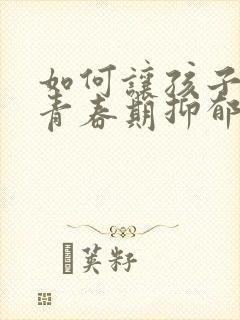 如何讓孩子
青春期抑郁
英籽